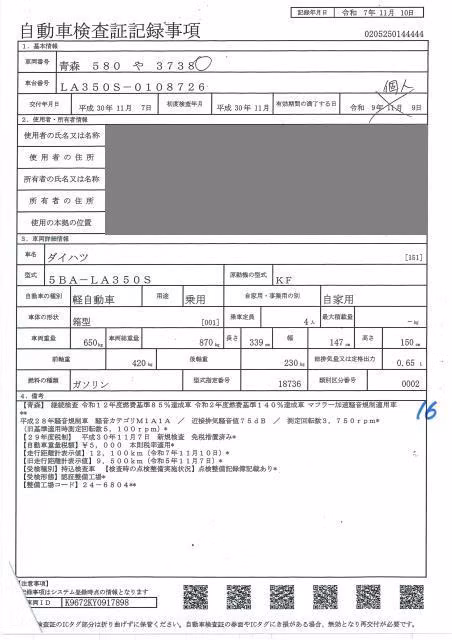 記録年月日 令和 7年11月 10日
自動車検査証記録事項
0205250144444
1. 基本情報
車両番号 青森 580 や 3738
車台番号 LA350S-0108726
個人
交付年月日 平成30年11月 7日 初度検査年月 平成30年11月 有効期間の満了する日 令和 9年11月 9日
2. 使用者・所有者情報
使用者の氏名又は名称
使用者の住所
所有者の氏名又は名称
所有者の住所
使用の本拠の位置
3. 車両詳細情報
車名 ダイハツ [151]
型式 5BA-LA350S 原動機の型式 KF
自動車の種別 軽自動車 用途 乗用 自家用・事業用の別 自家用
車体の形状 箱型 [001] 乗車定員 4人 最大積載量 -kg
車両重量 650kg 車両総重量 870kg 長さ 339cm 幅 147cm 高さ 150cm
前軸重 420kg 後軸重 230kg 総排気量又は定格出力 0.65L
燃料の種類 ガソリン 型式指定番号 18736 類別区分番号 0002
4. 備考
【青森】 継続検査 令和12年度燃費基準85%達成車 令和2年度燃費基準140%達成車 マフラー加速騒音規制適用車
**
16
平成28年騒音規制車 騒音カテゴリM1A1A / 近接排気騒音値75dB / 測定回転数3,750rpm*
(旧基準適用時測定回転数5,100rpm)*
【29年度税制】 平成30年11月7日 新規検査 免税措置済み*
【自動車重量税額】¥5,000 本則税率適用*
【走行距離計表示値】12,100km(令和7年11月10日)*
【旧走行距離計表示値】9,500km(令和5年11月7日)*
【受検種別】持込検査車 【検査時の点検整備実施状況】点検整備記録簿記載あり*
【受検形態】認証整備工場*
【整備工場コード】24-6804**
【注意事項】
記録事項はシステム登録時点の情報となります
車両ID K9672KY0917898
検査証のICタグ部分は折り曲げずに保管ください。自動車検査証の券面やICタグにき損がある場合、無効となり再交付が必要です。